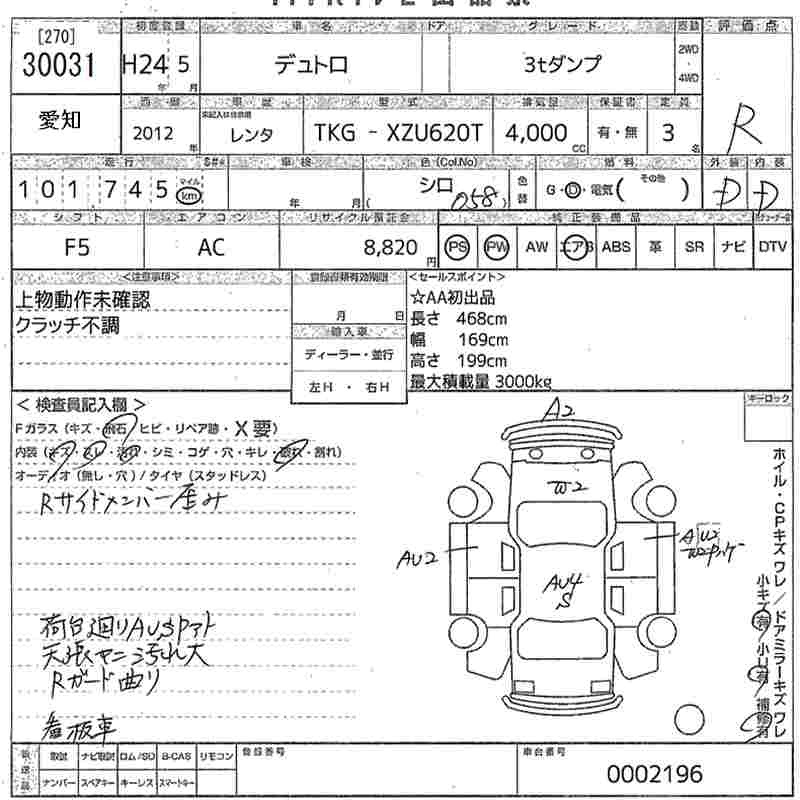 [270]
30031
初度登録
車名
ドア
グレード
駆動
評価点
H24 5
年 月
デュトロ
3tダンプ
2WD
4WD
愛知
車歴
型式
排気量
保証書
定員
2012 年
レンタ
TKG - XZU620T
4,000 CC
有・無
3 名
R
走行
車検
色(Col.No)
燃料
外装
内装
101745
マイル
km
年 月
シロ
058
色替
G・D・電気(その他)
D
D
シフト
エアコン
リサイクル預託金
純正装備品
F5
AC
8,820 円
PS
PW
AW
エアB
ABS
革
SR
ナビ
DTV
<注意事項>
上物動作未確認
クラッチ不調
登録書類有効期限
月 日
輸入車
ディーラー・並行
左H・右H
<セールスポイント>
☆AA初出品
長さ 468cm
幅 169cm
高さ 199cm
最大積載量 3000kg
<検査員記入欄>
キーロック
Fガラス(キズ・飛石・ヒビ・リペア跡・X要)
内装(キズ・スレ・汚れ・シミ・コゲ・穴・キレ・破れ・割れ)
オーディオ(無し・穴)/タイヤ(スタッドレス)
Rサイドメンバー歪み
A2
W2
AU2
AU4
S
荷台廻りAUSPアト
天張ヤニ汚れ大
Rガード曲り
看板車
ホイル・CPキズ ワレ/ドアミラーキズ ワレ
小キズ有 小U有 補修有
取説
ナビ取説
ロム/SD
B-CAS
リモコン
ナンバー
スペアキー
キーレス
スマートキー
登録番号
車台番号
0002196